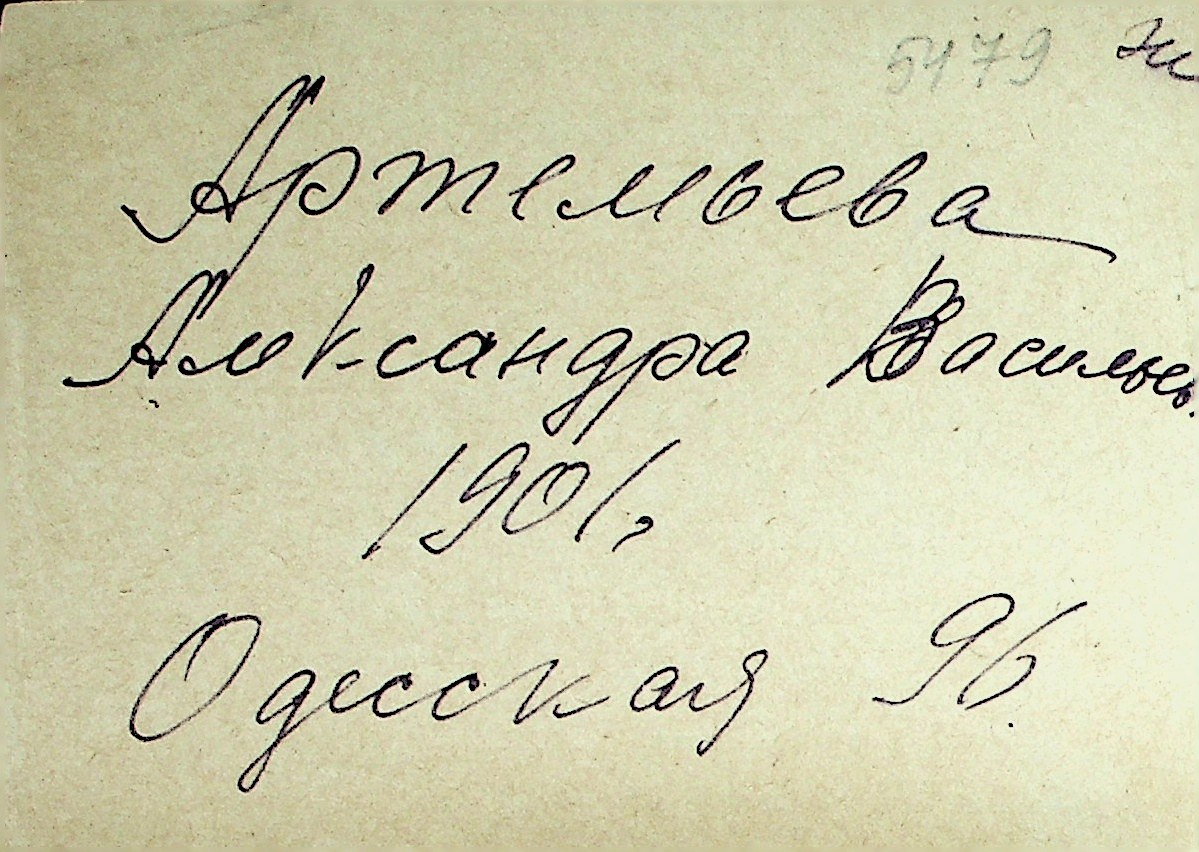 5479
Артемьева
Александра Васильев.
1901,
Одесская 96.